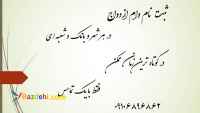 ثبت نام وام ازدواج
در هر شهر و بانک و شعبه ای
در کوتاه ترین زمان ممکن
فقط با یک تماس
۰۹۱۰۶۸۹۶۸۶۲
Bazdehi.com